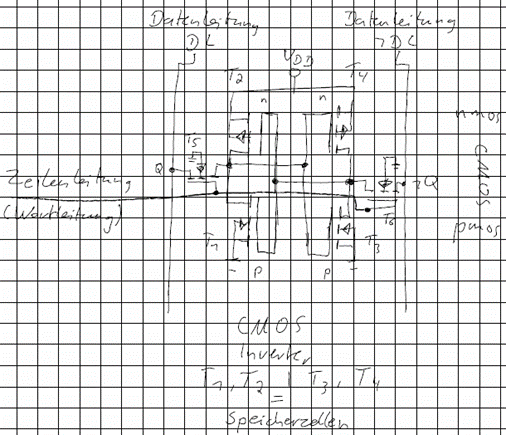 Datenleitung
DL
Datenleitung
¬DL
VDD
T2
T4
n
n
nmos
T5
CMOS
Q
¬Q
Zeilenleitung
(Wortleitung)
T6
pmos
T1
T3
p
p
CMOS
Inverter
T1, T2 = T3, T4
Speicherzellen